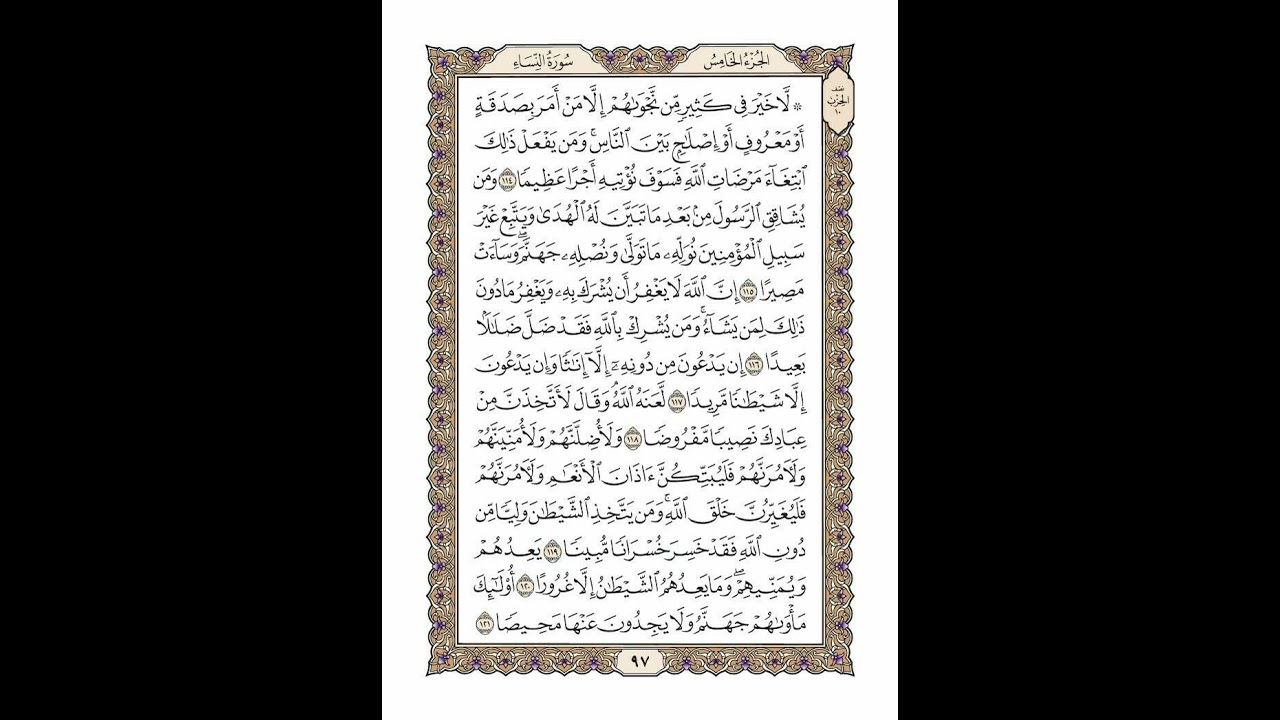 الجُزْءُ الخَامِسُ
سُورَةُ النِّسَاءِ
نصف
الحِزْبِ
١٠
۞ لَّا خَيْرَ فِي كَثِيرٖ مِّن نَّجْوَىٰهُمْ إِلَّا مَنْ أَمَرَ بِصَدَقَةٍ
أَوْ مَعْرُوفٍ أَوْ إِصْلَٰحِۭ بَيْنَ ٱلنَّاسِۚ وَمَن يَفْعَلْ ذَٰلِكَ
ٱبْتِغَآءَ مَرْضَاتِ ٱللَّهِ فَسَوْفَ نُؤْتِيهِ أَجْرًا عَظِيمٗا ١١٤ وَمَن
يُشَاقِقِ ٱلرَّسُولَ مِنۢ بَعْدِ مَا تَبَيَّنَ لَهُ ٱلْهُدَىٰ وَيَتَّبِعْ غَيْرَ
سَبِيلِ ٱلْمُؤْمِنِينَ نُوَلِّهِۦ مَا تَوَلَّىٰ وَنُصْلِهِۦ جَهَنَّمَۖ وَسَآءَتْ
مَصِيرًا ١١٥ إِنَّ ٱللَّهَ لَا يَغْفِرُ أَن يُشْرَكَ بِهِۦ وَيَغْفِرُ مَا دُونَ
ذَٰلِكَ لِمَن يَشَآءُۚ وَمَن يُشْرِكْ بِٱللَّهِ فَقَدْ ضَلَّ ضَلَٰلَۢا
بَعِيدًا ١١٦ إِن يَدْعُونَ مِن دُونِهِۦٓ إِلَّآ إِنَٰثٗا وَإِن يَدْعُونَ
إِلَّا شَيْطَٰنٗا مَّرِيدٗا ١١٧ لَّعَنَهُ ٱللَّهُۘ وَقَالَ لَأَتَّخِذَنَّ مِنْ
عِبَادِكَ نَصِيبٗا مَّفْرُوضٗا ١١٨ وَلَأُضِلَّنَّهُمْ وَلَأُمَنِّيَنَّهُمْ
وَلَأٓمُرَنَّهُمْ فَلَيُبَتِّكُنَّ ءَاذَانَ ٱلْأَنْعَٰمِ وَلَأٓمُرَنَّهُمْ
فَلَيُغَيِّرُنَّ خَلْقَ ٱللَّهِۚ وَمَن يَتَّخِذِ ٱلشَّيْطَٰنَ وَلِيّٗا مِّن
دُونِ ٱللَّهِ فَقَدْ خَسِرَ خُسْرَانٗا مُّبِينٗا ١١٩ يَعِدُهُمْ
وَيُمَنِّيهِمْۖ وَمَا يَعِدُهُمُ ٱلشَّيْطَٰنُ إِلَّا غُرُورًا ١٢٠ أُوْلَٰٓئِكَ
مَأْوَىٰهُمْ جَهَنَّمُ وَلَا يَجِدُونَ عَنْهَا مَحِيصٗا ١٢١
٩٧